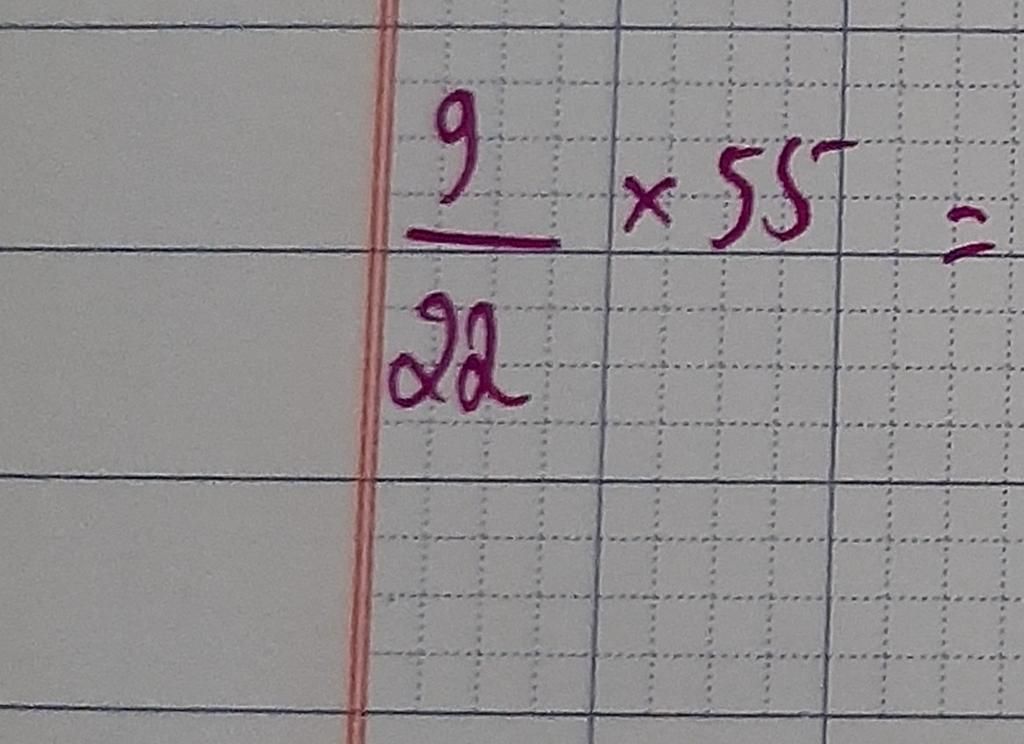 9/22 × 55 =